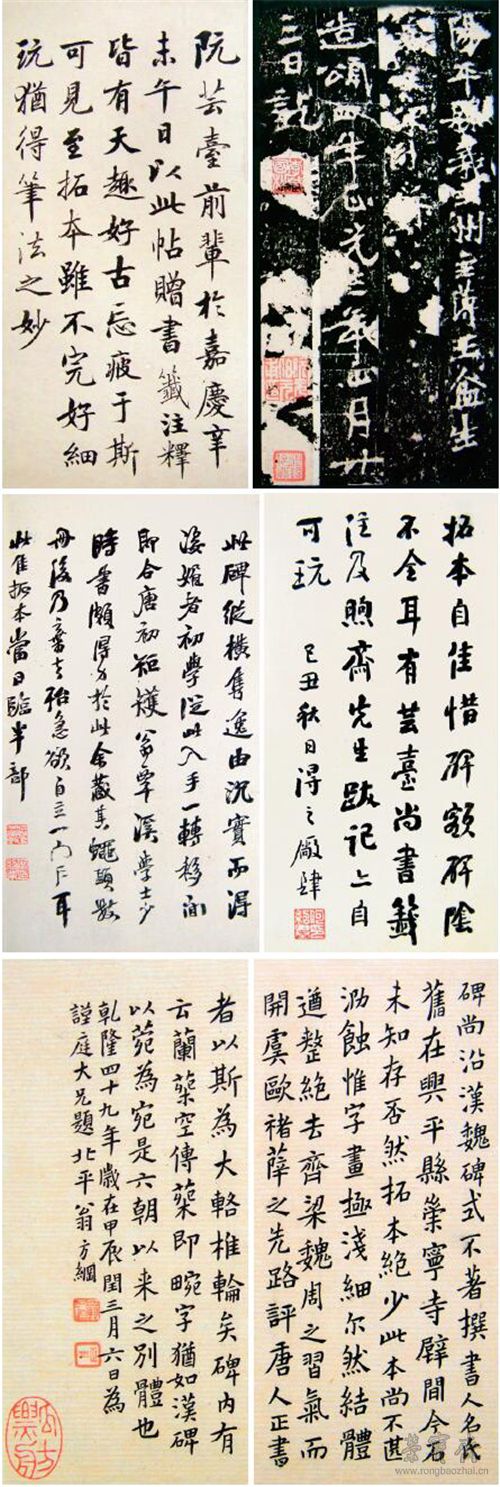 陽平縣義主州主薄王盆生
造頌四年正光三年正月廿
三日訖
阮芸臺前輩於嘉慶辛
未午日以此帖贈書籤注釋
皆有天趣好古忘疲于斯
可見至拓本雖不完好細
玩猶得筆法之妙
拓本自佳惜碑額碑陰
不全耳有芸臺尚書籤
注及煦齋先生跋記亦自
可玩 己丑秋日得之廠肆
此碑縱橫隽逸由沉實而得
姿媚者初學從此入手一轉移間
即合唐初矩矱翁覃溪學士少
時書頗得力於此余藏其蠅頭數
冊後乃棄去殆急欲自立一門戶耳
此佳拓本當日臨半部
碑尚沿漢魏碑式不著撰書人名氏
舊在興平縣崇寧寺壁間今石
未知存否然拓本絕少此本尚不甚
泐蝕惟字畫極淺細尔然結體
遒整絕去齊梁魏周之習氣而
開虞歐褚薛之先路評唐人正書
者以斯為大輅椎輪矣碑内有
云蘭空傳即畹字猶如漢碑
以菀為宛是六朝以来之別體也
乾隆四十九年歲在甲辰閏三月六日為
謹庭大兄題 北平翁方綱
榮寶齋
www.rongbaozhai.cn